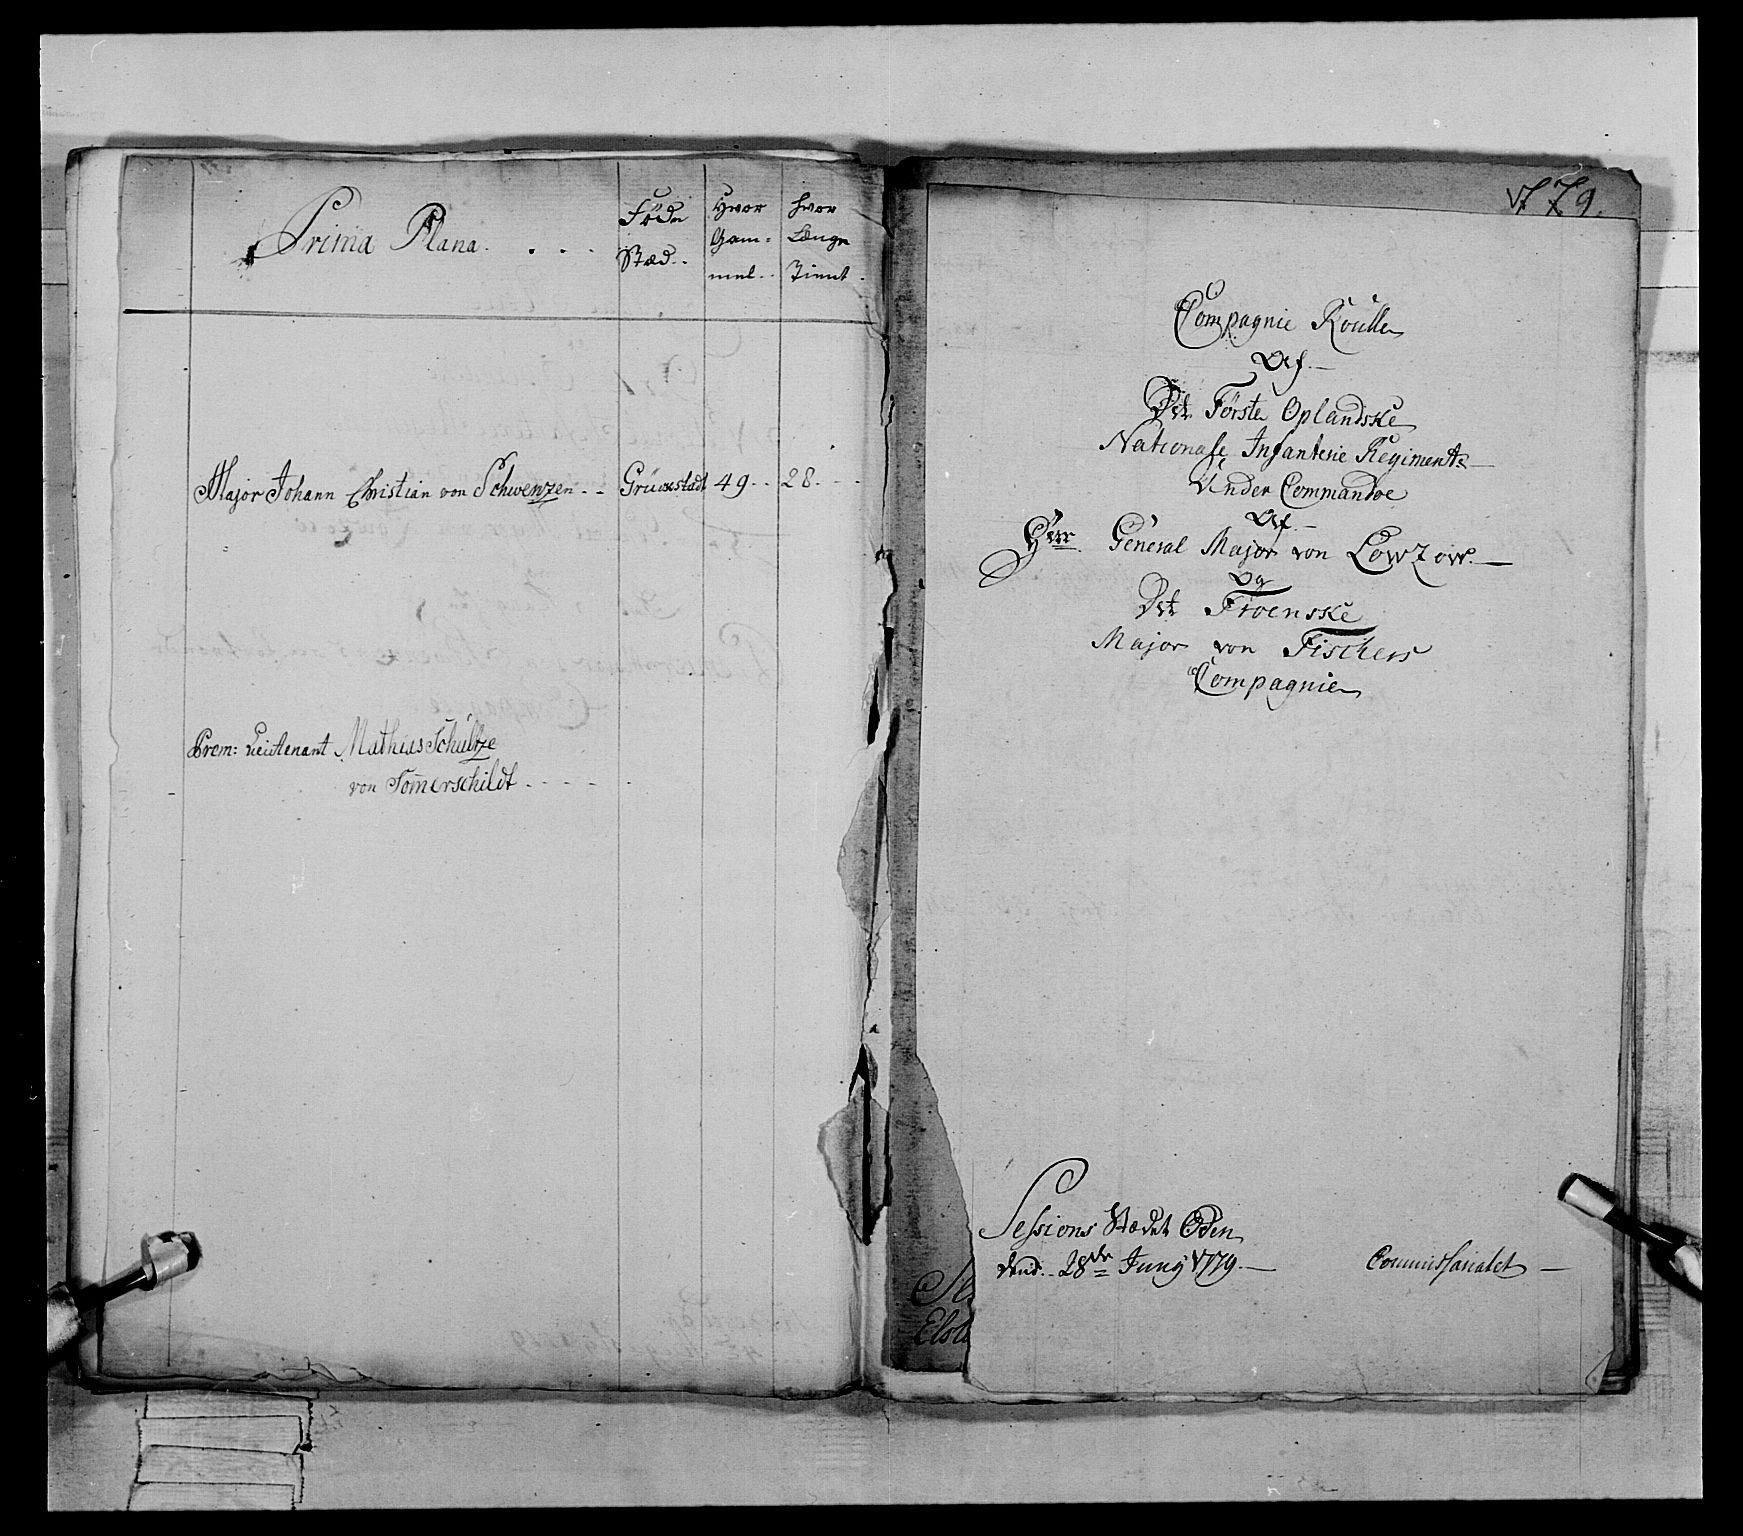 Prima Plana. . . .
Föde Stæd..
Hvor Gam= mel..
hvor Længe Tient.
Major Johann Christian von Schwenzen.. Grünestadt 49.. 28.
Prem: Lieutenant Mathias Schültze
von Tom̄erschildt
1779.
Compagnie Roulle
Af
Det Förste Oplandske
Nationale Infanterie Regiments
Under Commandoe
Af
Herr General Major von Lowzow.
Og
Det Froenske
Major von Fischers
Compagnie
Sessions Stædet Oden
dend. 28de Juny 1779.
Commissariatet